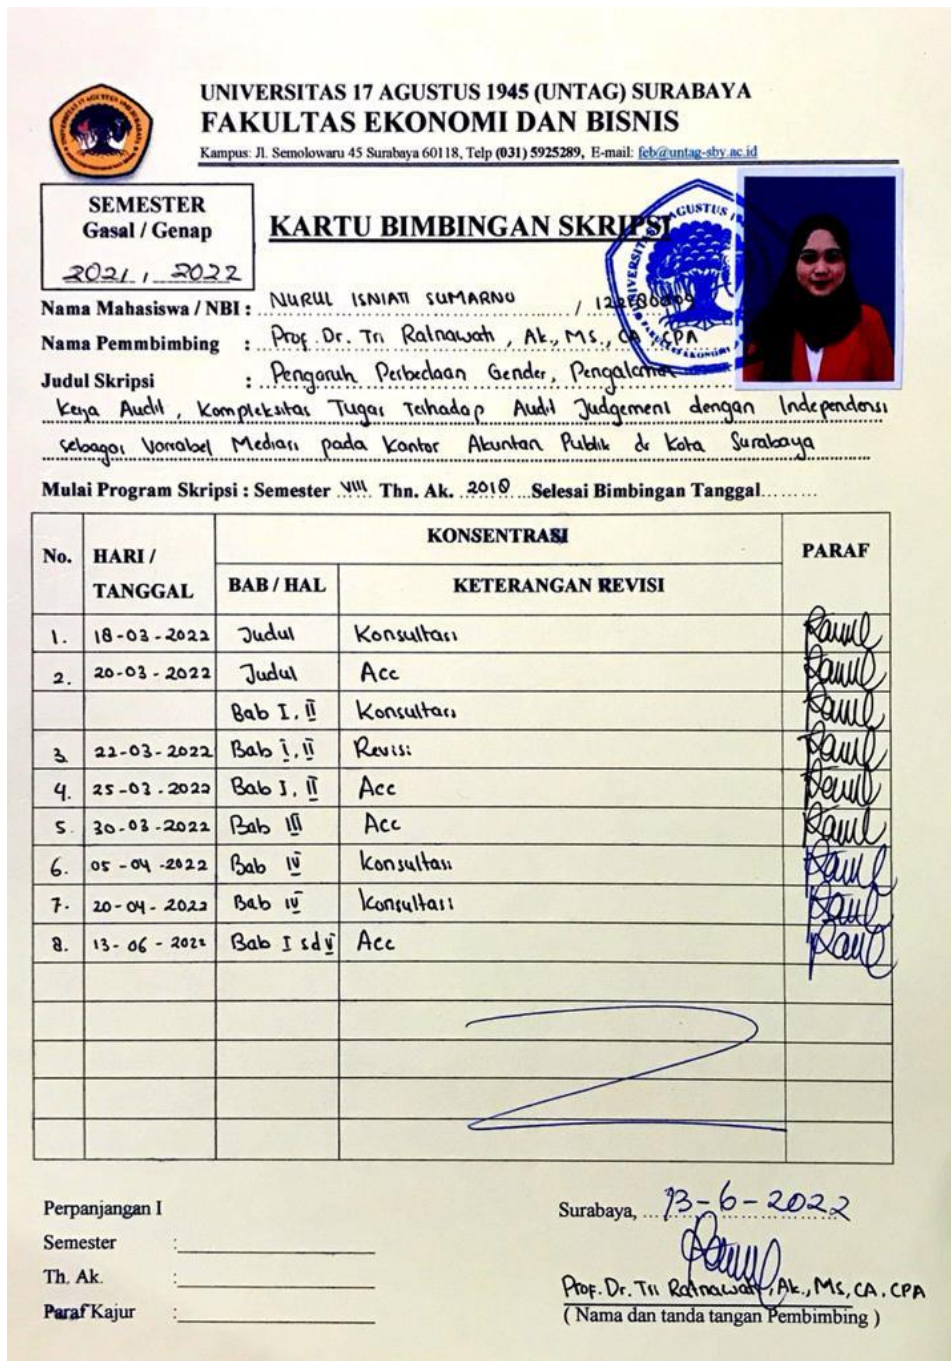 UNIVERSITAS 17 AGUSTUS 1945 (UNTAG) SURABAYA
FAKULTAS EKONOMI DAN BISNIS
Kampus: Jl. Semolowaru 45 Surabaya 60118, Telp (031) 5925289, E-mail: feb@untag-sby.ac.id
SEMESTER
Gasal / Genap
2021 / 2022
KARTU BIMBINGAN SKRIPSI
Nama Mahasiswa / NBI : NURUL ISNIATI SUMARNO /
Nama Pemmbimbing : Prof. Dr. Tri Ratnawati, Ak., MS., CA., CPA
Judul Skripsi : Pengaruh Perbedaan Gender, Pengalaman
Kerja Audit, Kompleksitas Tugas Terhadap Audit Judgement dengan Independensi
sebagai Variabel Mediasi pada Kantor Akuntan Publik di Kota Surabaya
Mulai Program Skripsi : Semester VIII Thn. Ak. 2018 Selesai Bimbingan Tanggal.........
No. HARI / TANGGAL KONSENTRASI PARAF
BAB / HAL KETERANGAN REVISI
1. 18-03-2022 Judul Konsultasi
2. 20-03-2022 Judul Acc
Bab I, II Konsultasi
3. 22-03-2022 Bab I, II Revisi
4. 25-03-2022 Bab I, II Acc
5. 30-03-2022 Bab III Acc
6. 05-04-2022 Bab IV Konsultasi
7. 20-04-2022 Bab IV Konsultasi
8. 13-06-2022 Bab I sd V Acc
Perpanjangan I
Semester :
Th. Ak. :
Paraf Kajur :
Surabaya, 13-6-2022
Prof. Dr. Tri Ratnawati, Ak., MS, CA, CPA
( Nama dan tanda tangan Pembimbing )